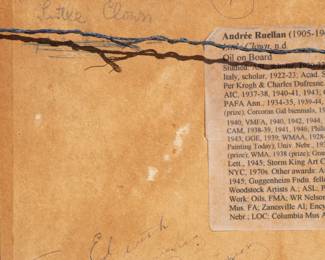 Little Clown
Andrée Ruellan (1905-
Little Clown, n.d.
Oil on Board
Italy, scholar, 1922-23; Acad.
Per Krogh & Charles Dufresne.
AIC, 1937-38, 1940-41, 1943;
PAFA Ann., 1934-35, 1939-44,
(prize); Corcoran Gal biennials,
1940, VMFA, 1940, 1942, 1944,
CAM, 1938-39, 1941, 1946; Phila
1943; GGE, 1939; WMAA, 1928-
Painting Today); Univ. Nebr., 195
(prize); WMA, 1938 (prize); Gran
Lett., 1945; Storm King Art C
NYC, 1970s. Other awards: A
1945; Guggenheim Fndn. fello
Woodstock Artists A.; ASL; P
Work: Oils, FMA; WR Nelson
Mus. FA; Zanesville AI; Ency
Nebr.; LOC; Columbia Mus A